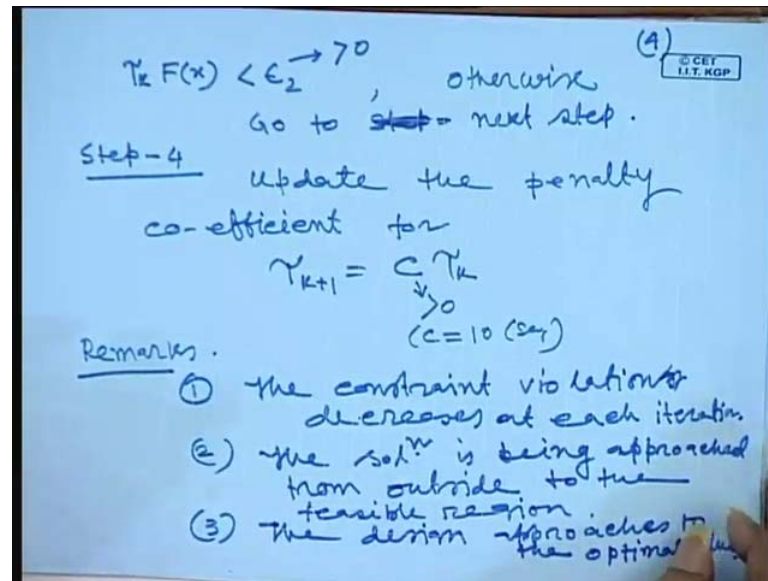 (4)
© CET
I.I.T. KGP
τₖ F(x) < ϵ₂ → >0 , otherwise
Go to next step.
Step-4 update the penalty
co-efficient for
τₖ₊₁ = C τₖ
>0
(C=10 (say)
Remarks.
① the constraint violation
decreases at each iteration.
(2) the solⁿ is being approached
from outside to the
feasible region.
(3) the design approaches to
the optimal